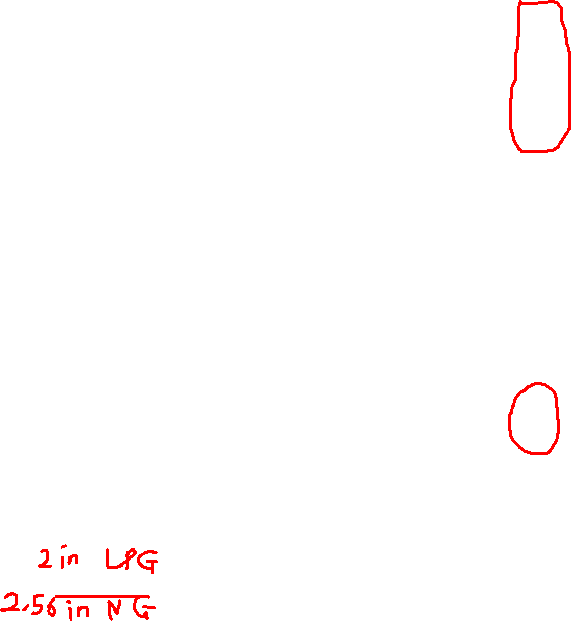 2 in LPG
2.56 in NG